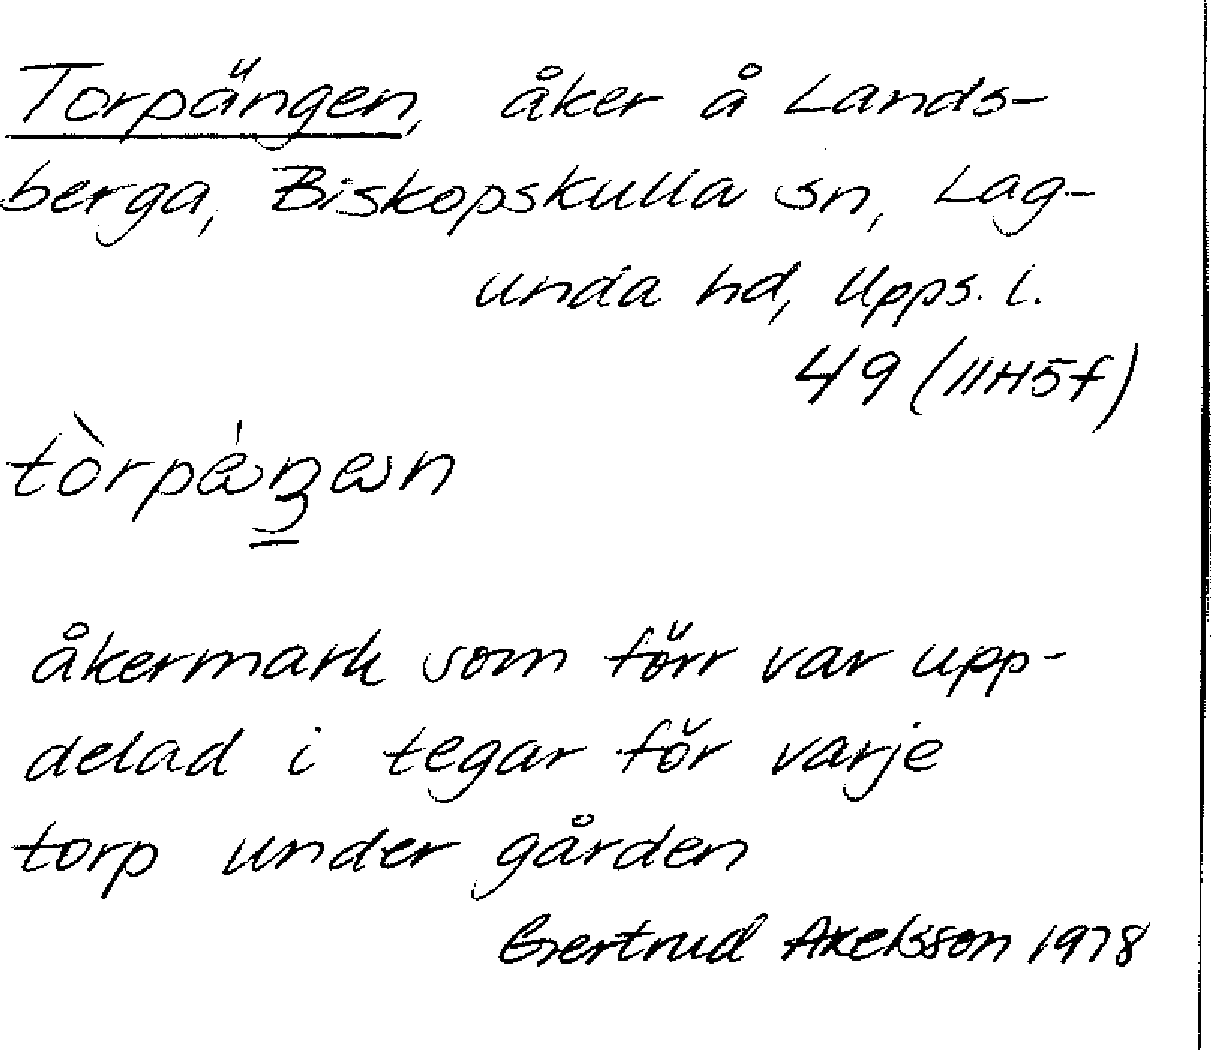 Torpängen, åker å Lands-
berga, Biskopskulla sn, Lag-
unda hd, Upps. l.
49 (11H5f)
åkermark som förr var upp-
delad i tegar för varje
torp under gården
Gertrud Axelsson 1978